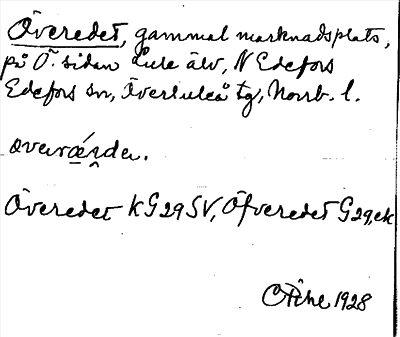 Överedet, gammal marknadsplats,
på Ö. sidan Lule älv, N Edefors
Edefors sn, Överluleå tg, Norrb. l.
Överedet KG29SV, Öfveredet G29,ek
1928